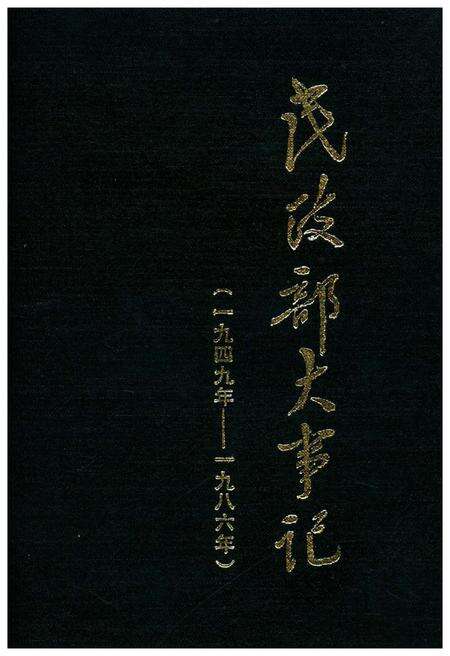 民政部大事记
（一九四九年——一九八六年）